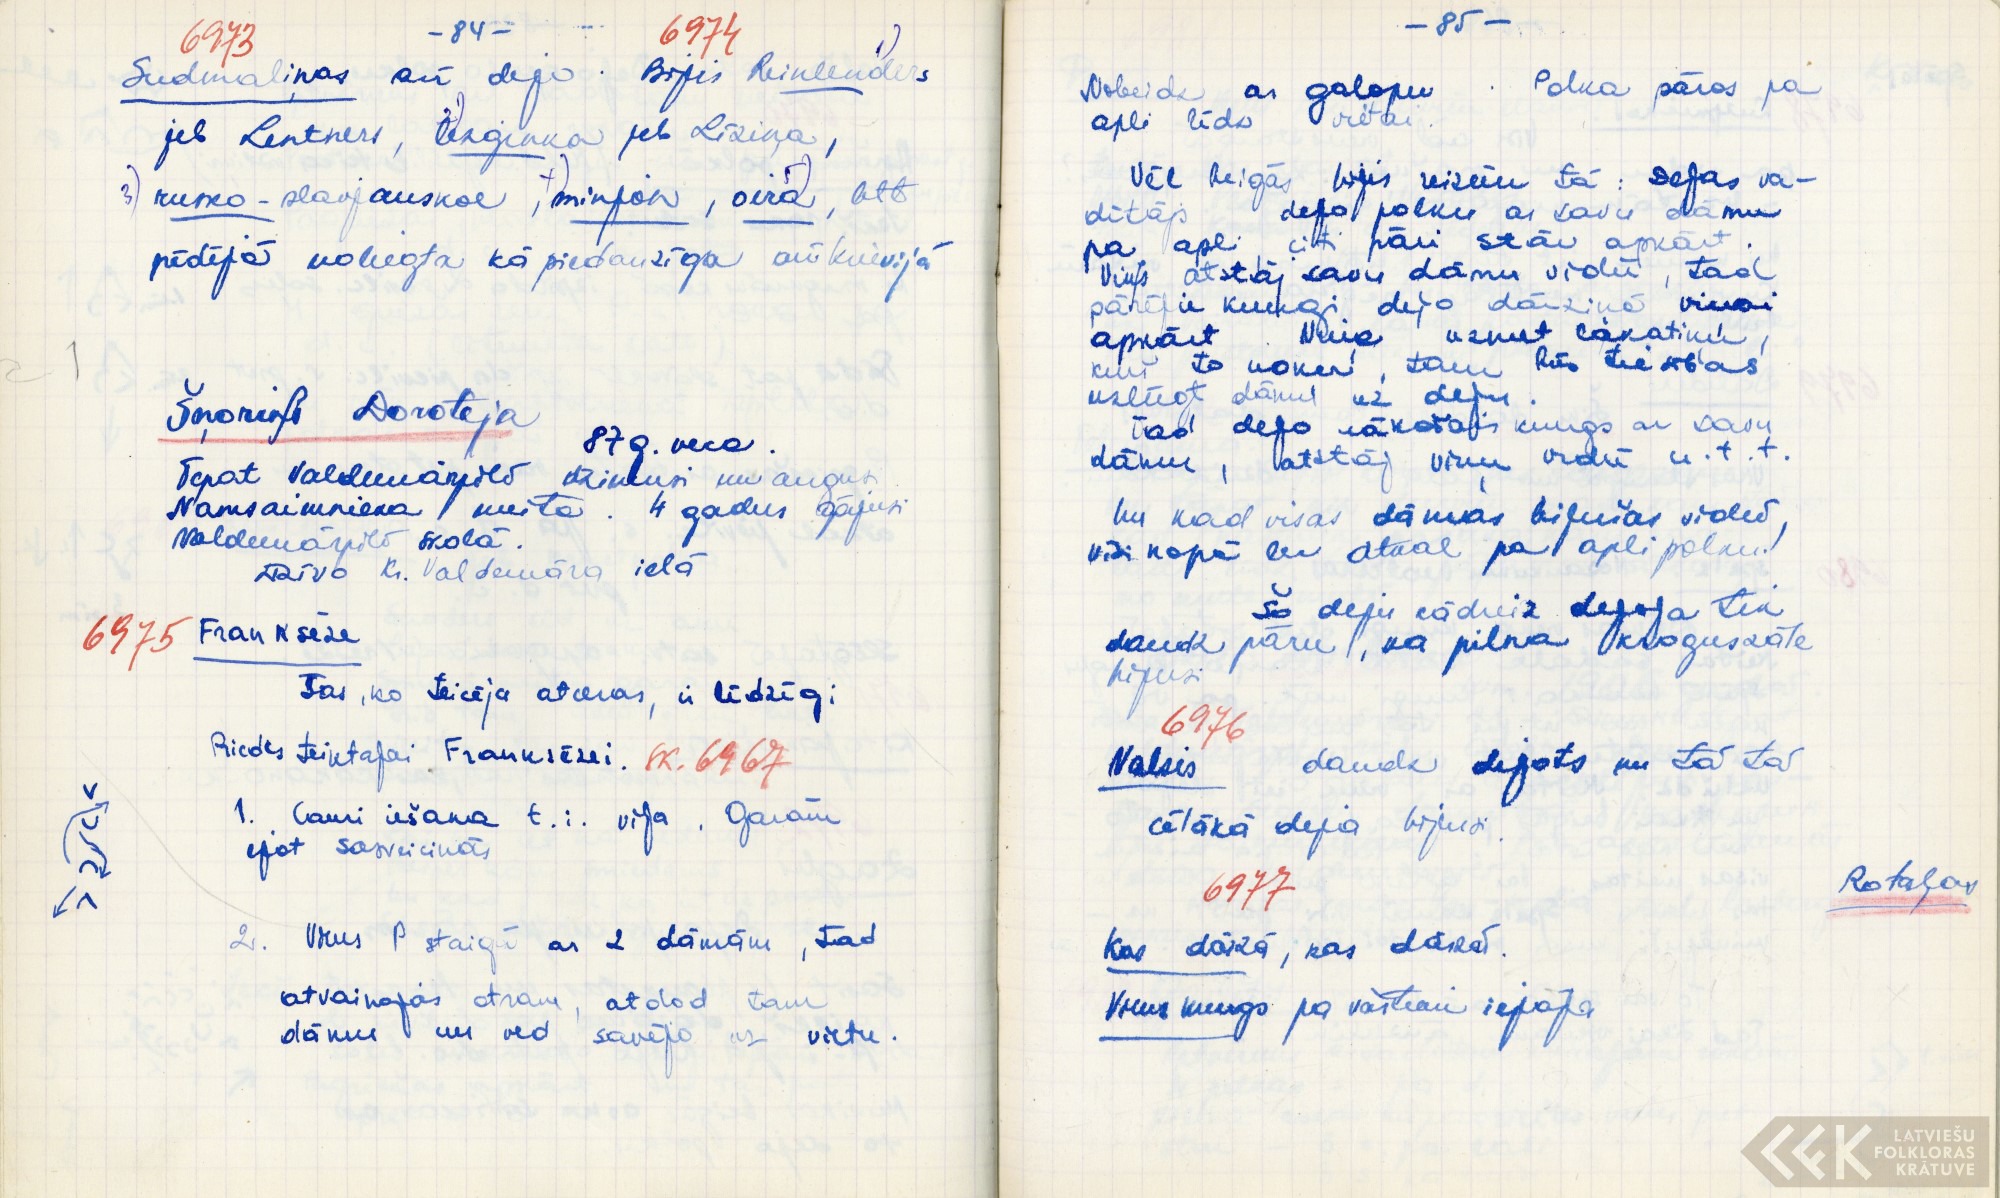 6973 -84- 6974
Sudmaliņas arī dejo. Bijis Reinlenders 1)
jeb Lentners, 2) lezginka jeb Līziņa,
3) rusko-slavjanskoe, 4) minjon, 5) oira, bet
pēdējā noliegta kā piedauzīga
Šņoriņš Doroteja
87 g. veca.
Tepat Valdemārpilī dzimusi un augusi
Namsaimnieka meita. 4 gadus gājusi
Valdemārpilī skolā.
Dzīvo Kr. Valdemāra ielā
6975 Franksēze
Tas, ko teicēja atceras, ir līdzīgi
Riedes teiktajai Franksēzei. sk. 6967
1. Cauri iešana t.i. vija. Garām
ejot sasveicinās
2. Viens P staigā ar 2 dāmām, tad
atvainojas otram, atdod tam
dāmu un ved savējo uz vietu.
-85-
Nobeidz ar galopu. Polka pāros pa
apli līdz vietai.
Vēl beigās bijis reizēm tā: Dejas va-
dītājs dejo polku ar savu dāmu
pa apli, citi pāri stāv apkārt.
Viņš atstāj savu dāmu vidū, tad
pārējie kungi dejo dārziņā viņai
apkārt. Viņa uzmet lakatiņu,
kurš to noķer, tam būs tiesības
uzlūgt dāmu uz deju.
Tad dejo nākošais kungs ar savu
dāmu, atstāj viņu vidū u.t.t.
Un kad visas dāmas bijušas vidū,
visi kopā lec atkal pa apli polku!
Šo deju kādreiz dejoja tik
daudz pāru, ka pilna kroguszāle
bijusi
6976
Valsis daudz dejots un tā tā
cēlākā deja bijusi.
6977
Rotaļas
Kas dārzā, kas dārzā.
Viens kungs pa vārtiem iejāja
LATVIEŠU
FOLKLORAS
KRĀTUVE